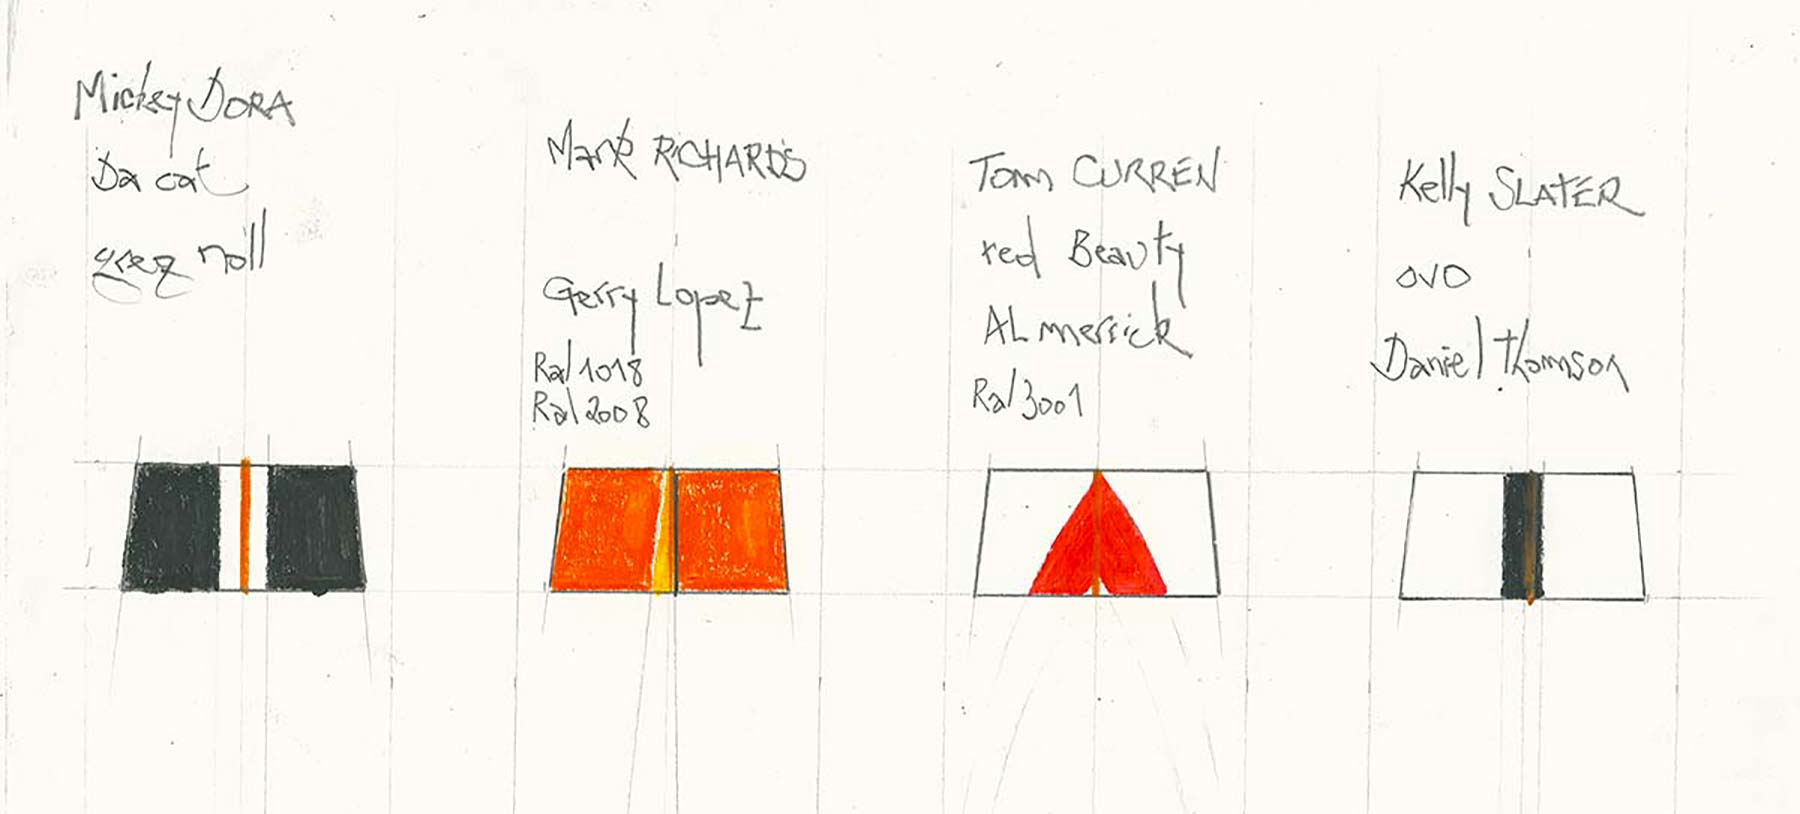 Mickey DORA
Da cat
greg noll
Mark RICHARDS
Gerry Lopez
Ral 1018
Ral 2008
Tom CURREN
red Beauty
AL merrick
Ral 3001
Kelly SLATER
OVO
Daniel Thomson